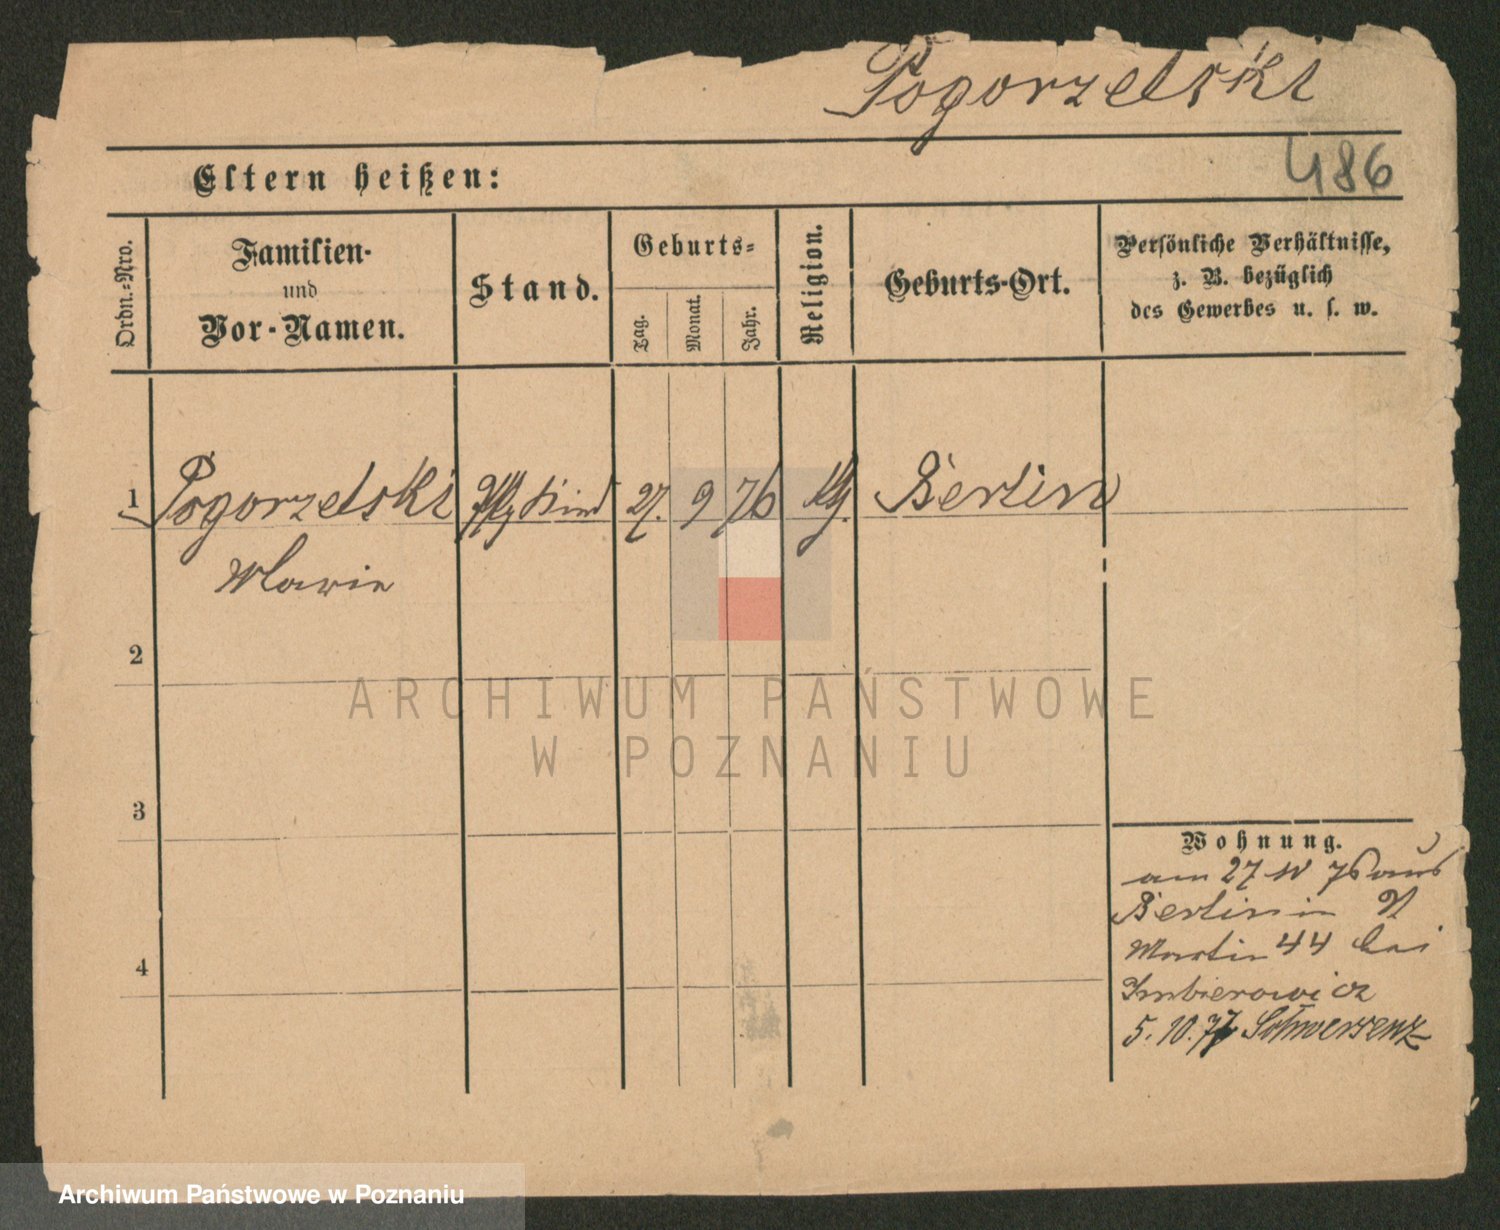 Pogorzelski
486
Eltern heißen:
Ordn.-Nro.
Familien-
und
Vor-Namen.
Stand.
Geburts-
Tag.
Monat.
Jahr.
Religion.
Geburts-Ort.
Persönliche Verhältnisse,
z. B. bezüglich
des Gewerbes u. s. w.
1 Pogorzelski Kind 27. 9 76 Berlin
Marie
2
ARCHIWUM PAŃSTWOWE
W POZNANIU
3
4
Wohnung.
am 27 10 76 aus
Berlin in St
Martin 44 bei
Imbierowicz
5. 10. 77 Schwersenz
Archiwum Państwowe w Poznaniu